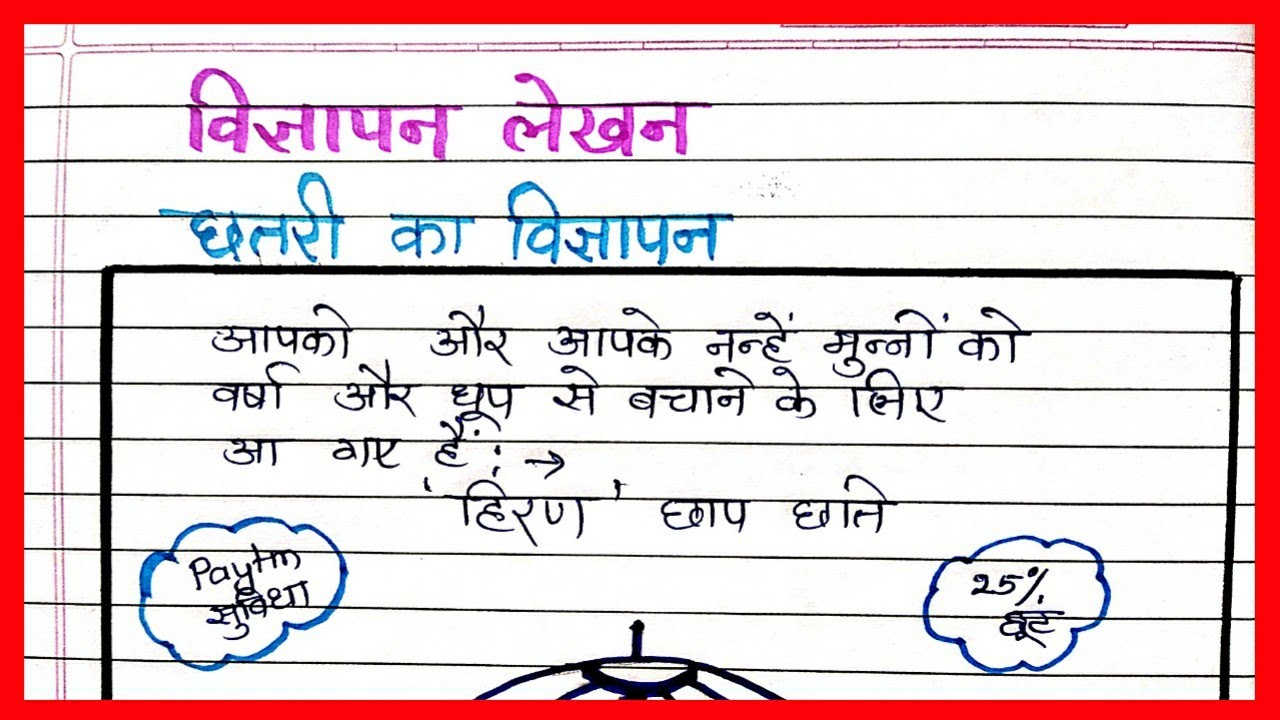 विज्ञापन लेखन
छतरी का विज्ञापन
आपको और आपके नन्हें मुन्नों को
वर्षा और धूप से बचाने के लिए
आ गए हैं : →
'हिरण' छाप छाते
Paytm
सुविधा
25%
छूट